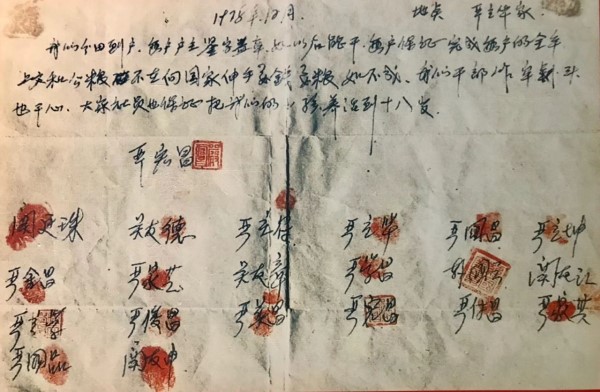 1978年12月. 地点 严立华家
我们分田到户，每户户主签字盖章，如以后能干，每户保证完成每户的全年
上交和公粮，不在向国家伸手要钱要粮，如不成，我们干部作牢割头
也干心，大家社员也保证把我们的小孩养活到十八岁。
严宏昌
关廷珠 关友德 严立符 严立华 严国昌 严立坤
严金昌 严家芝 关友章 严学昌 韩国云 关友江
严立学 严俊昌 严美昌 严宏昌 严付昌 严家其
严国品 关友申